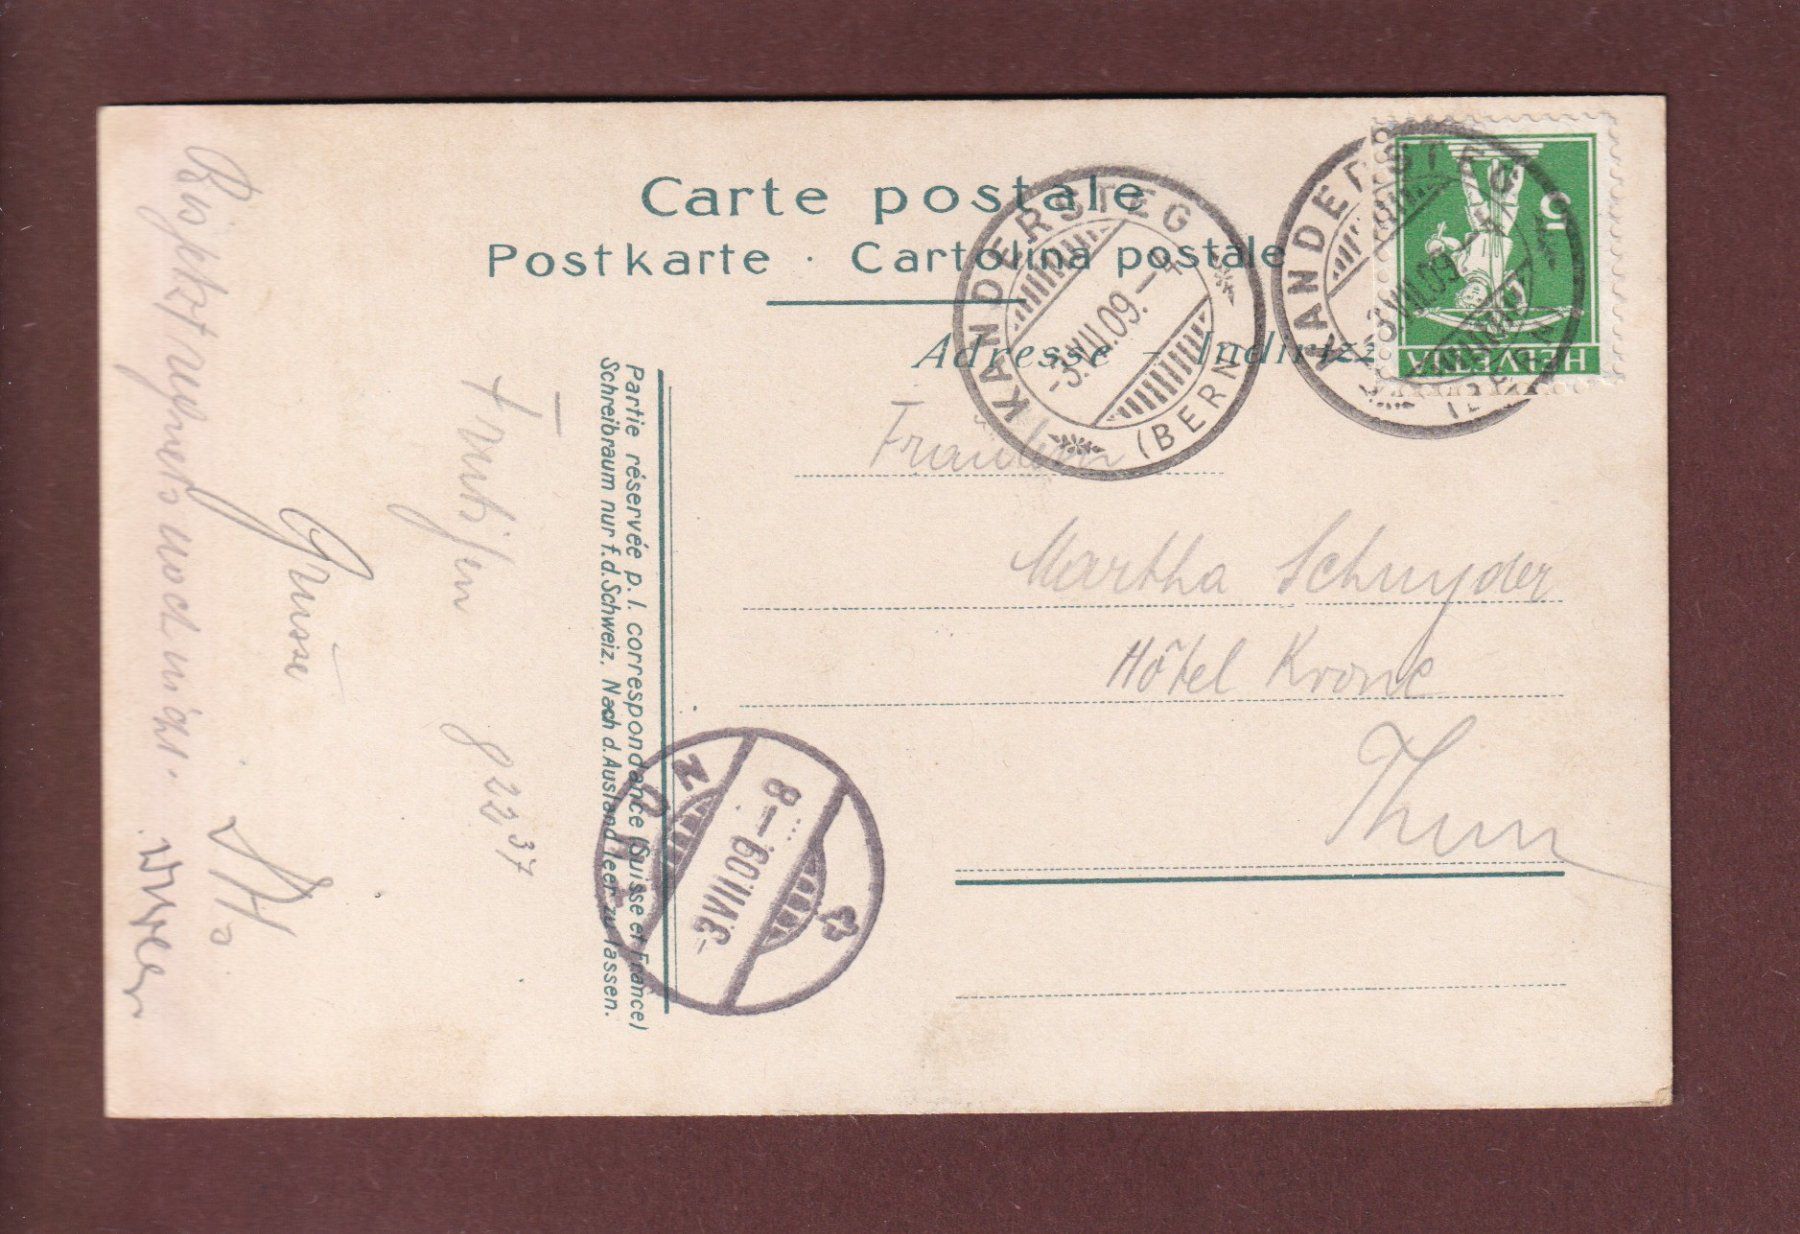 Carte postale
Postkarte · Cartolina postale
Adresse – Indirizz
KANDERSTEG
-3.VII.09.-
(BERN)
KANDERSTEG
-3.VII.09.-
(BERN)
5
HELVETIA
Fräulein
Martha Schnyder
Hôtel Krone
Thun
Partie réservée p. l. correspondance (Suisse et France)
Schreibraum nur f. d. Schweiz. Nach d. Ausland leer zu lassen.
THUN
-3.VII.09.-8
8 22 37
Grüsse
Bis jetzt regnets noch nicht.